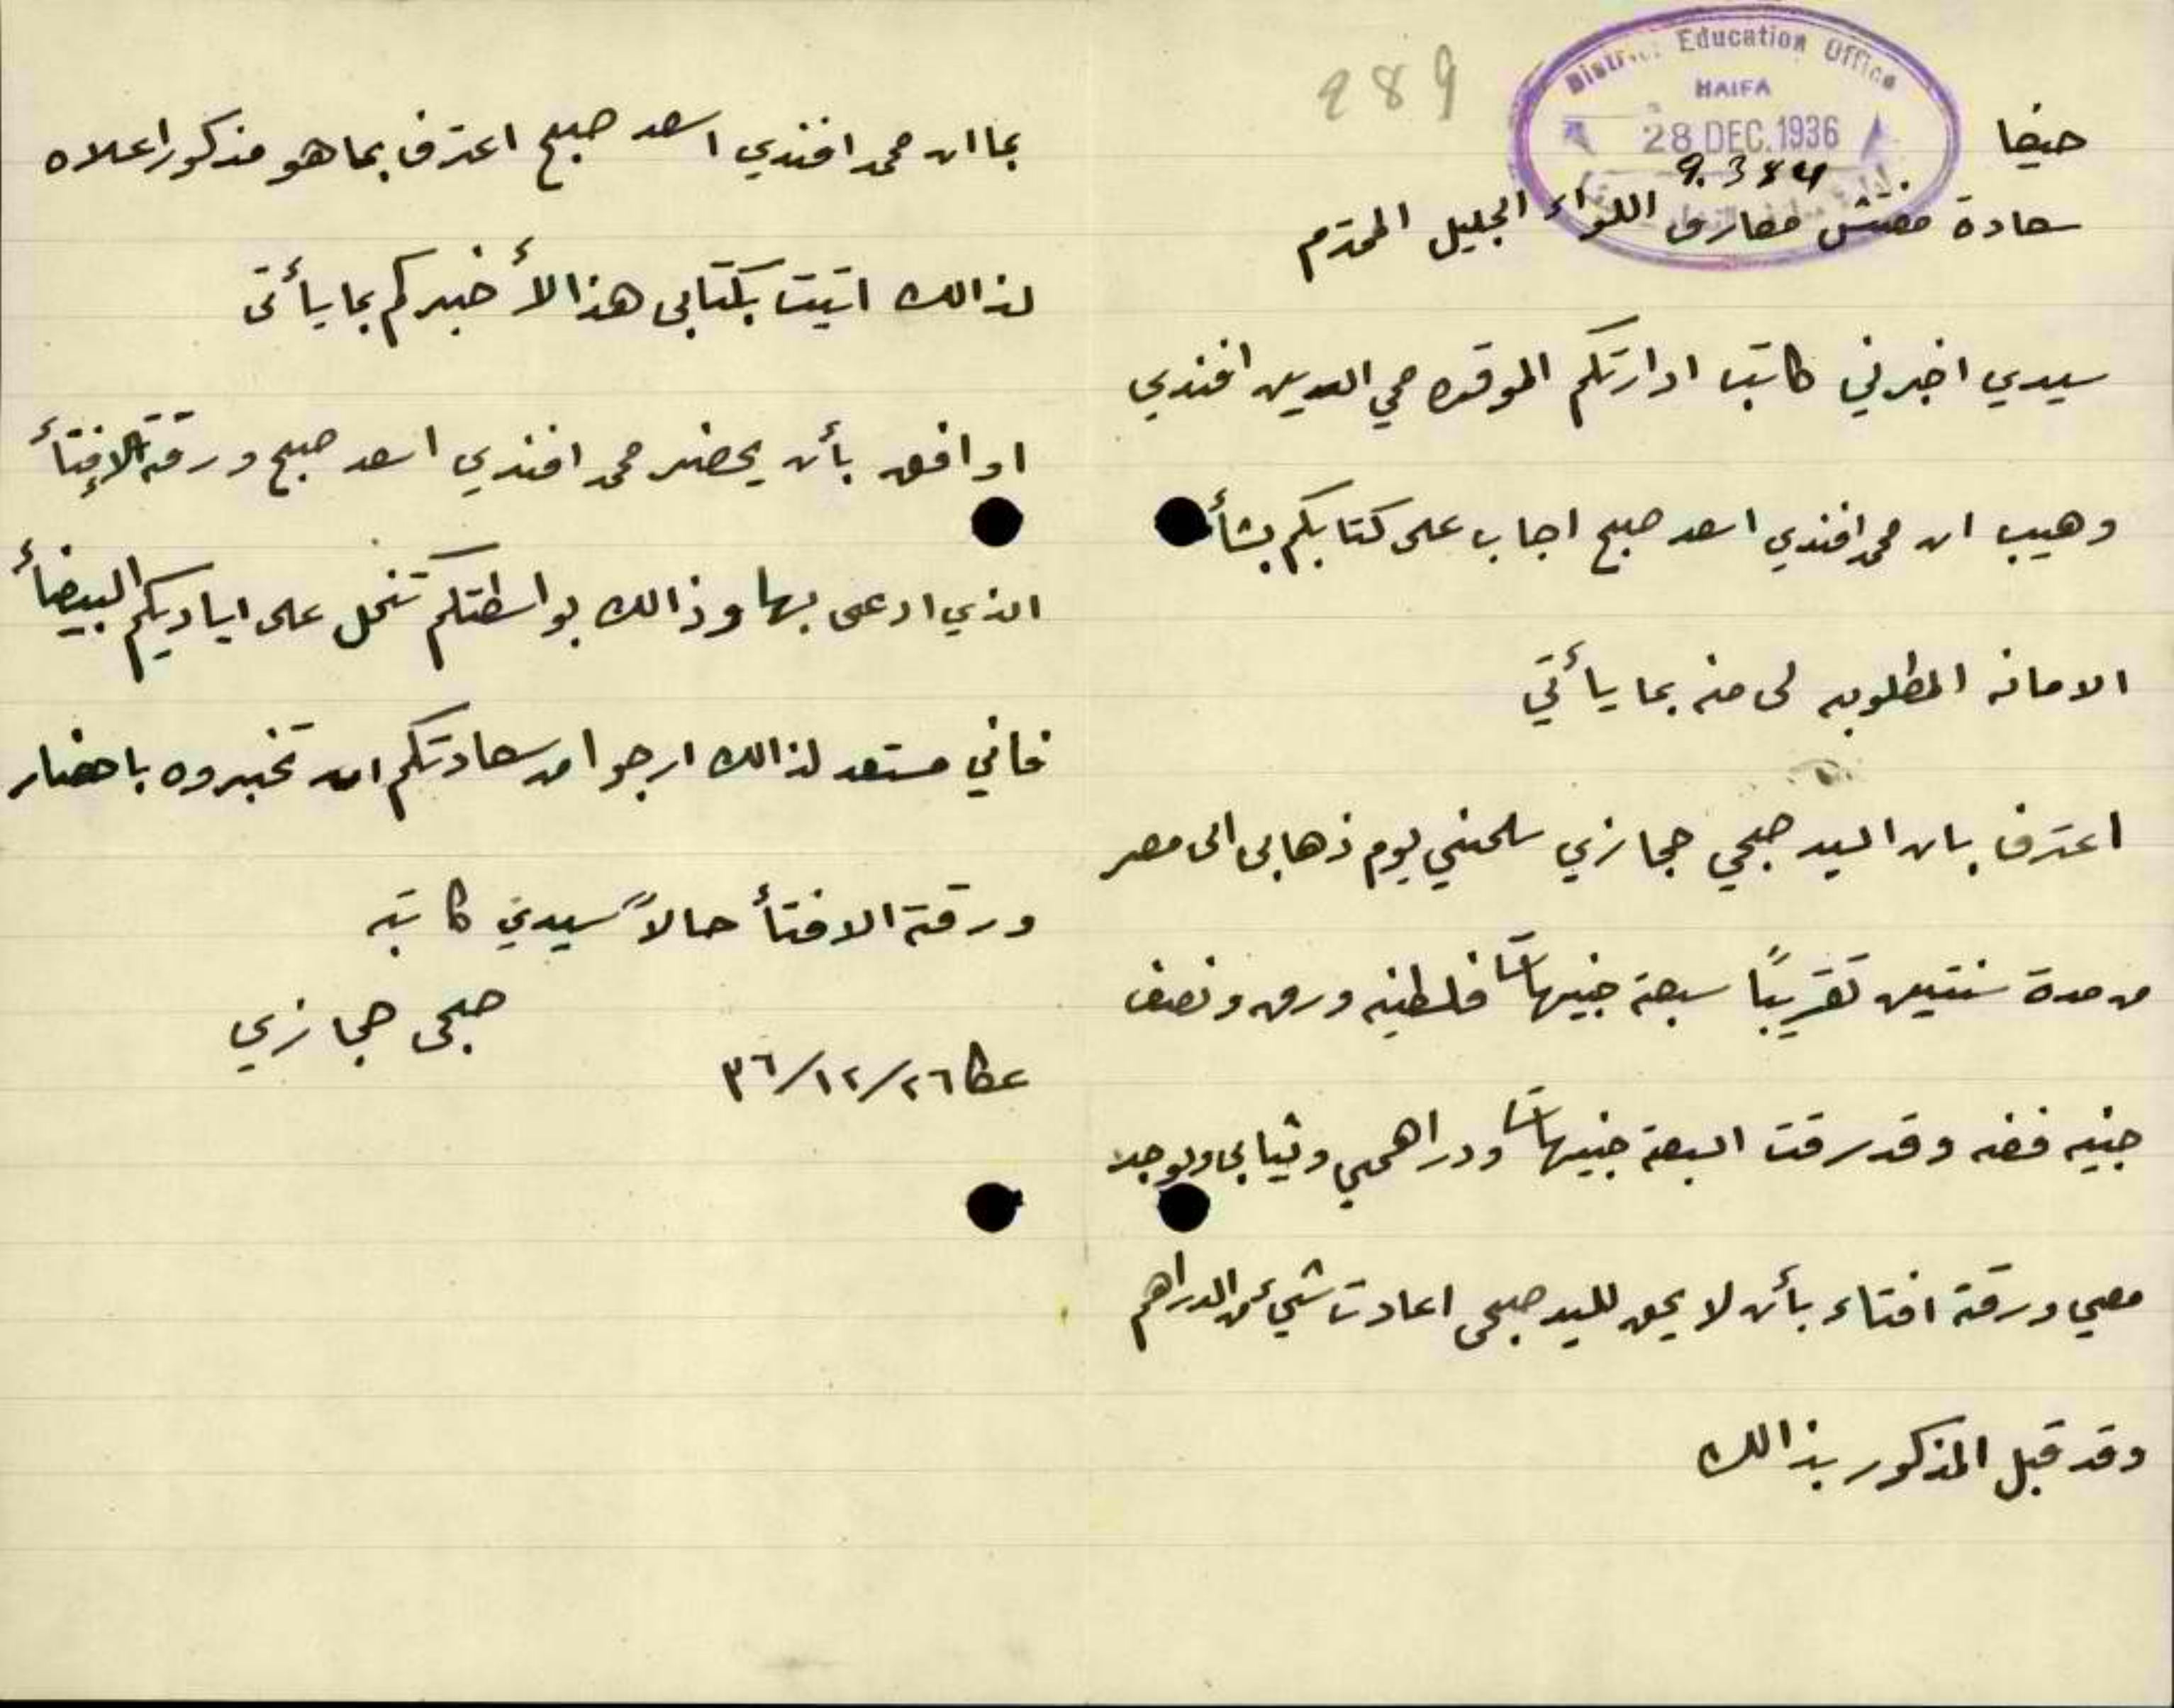 289
District Education Office
HAIFA
28 DEC. 1936
9.384
حيفا
سعادة مفتش معارف اللواء الجليل المحترم
سيدي اخبرني كاتب ادارتكم الموقره محي الدين افندي
وهيب ان محمد افندي اسعد صبح اجاب على كتابكم بشأن
الامانه المطلوبه لى منه بما يأتي
اعترف بان السيد صبحي حجازي سلمني يوم ذهابى الى مصر
من مدة سنتين تقريبًا سبعة جنيهات فلسطينه ورق ونصف
جنيه فضه وقد سرقت السبعة جنيهات ودراهمي وثيابى ويوجد
معي ورقة افتاء بأن لا يحق للسيد صبحى اعادت شيء من الدراهم
وقد قبل المذكور بذالك
بما ان محمد افندي اسعد صبح اعترف بما هو مذكور اعلاه
لذالك اتيت بكتابى هذا لأخبركم بما يأتى
اوافق بأن يحضر محمد افندي اسعد صبح ورقة الإفتأ
الذي ادعى بها وذالك بواسطتكم تنحل على اياديكم البيضأ
فاني مستعد لذالك ارجوا من سعادتكم ان تخبروه باحضار
ورقة الافتأ حالاً سيدي كاتبه
صبحى حجازي
عكا ٢٦/١٢/٣٦